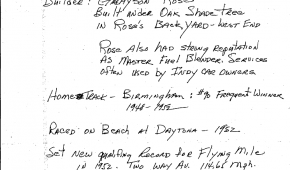 Builder: GRAYSON ROSE
Built under Oak Shade trees
in Rose's Back Yard - West End
Rose Also Had strong Reputation
As Master Fuel Blender. Services
often used by Indy Car owners
Home Track - Birmingham: #90 Frequent Winner
1948 -
Raced on Beach at Daytona - 1952
Set New qualifying Record for Flying Mile
in 1952. Two Way Av. 114.65 Mph.